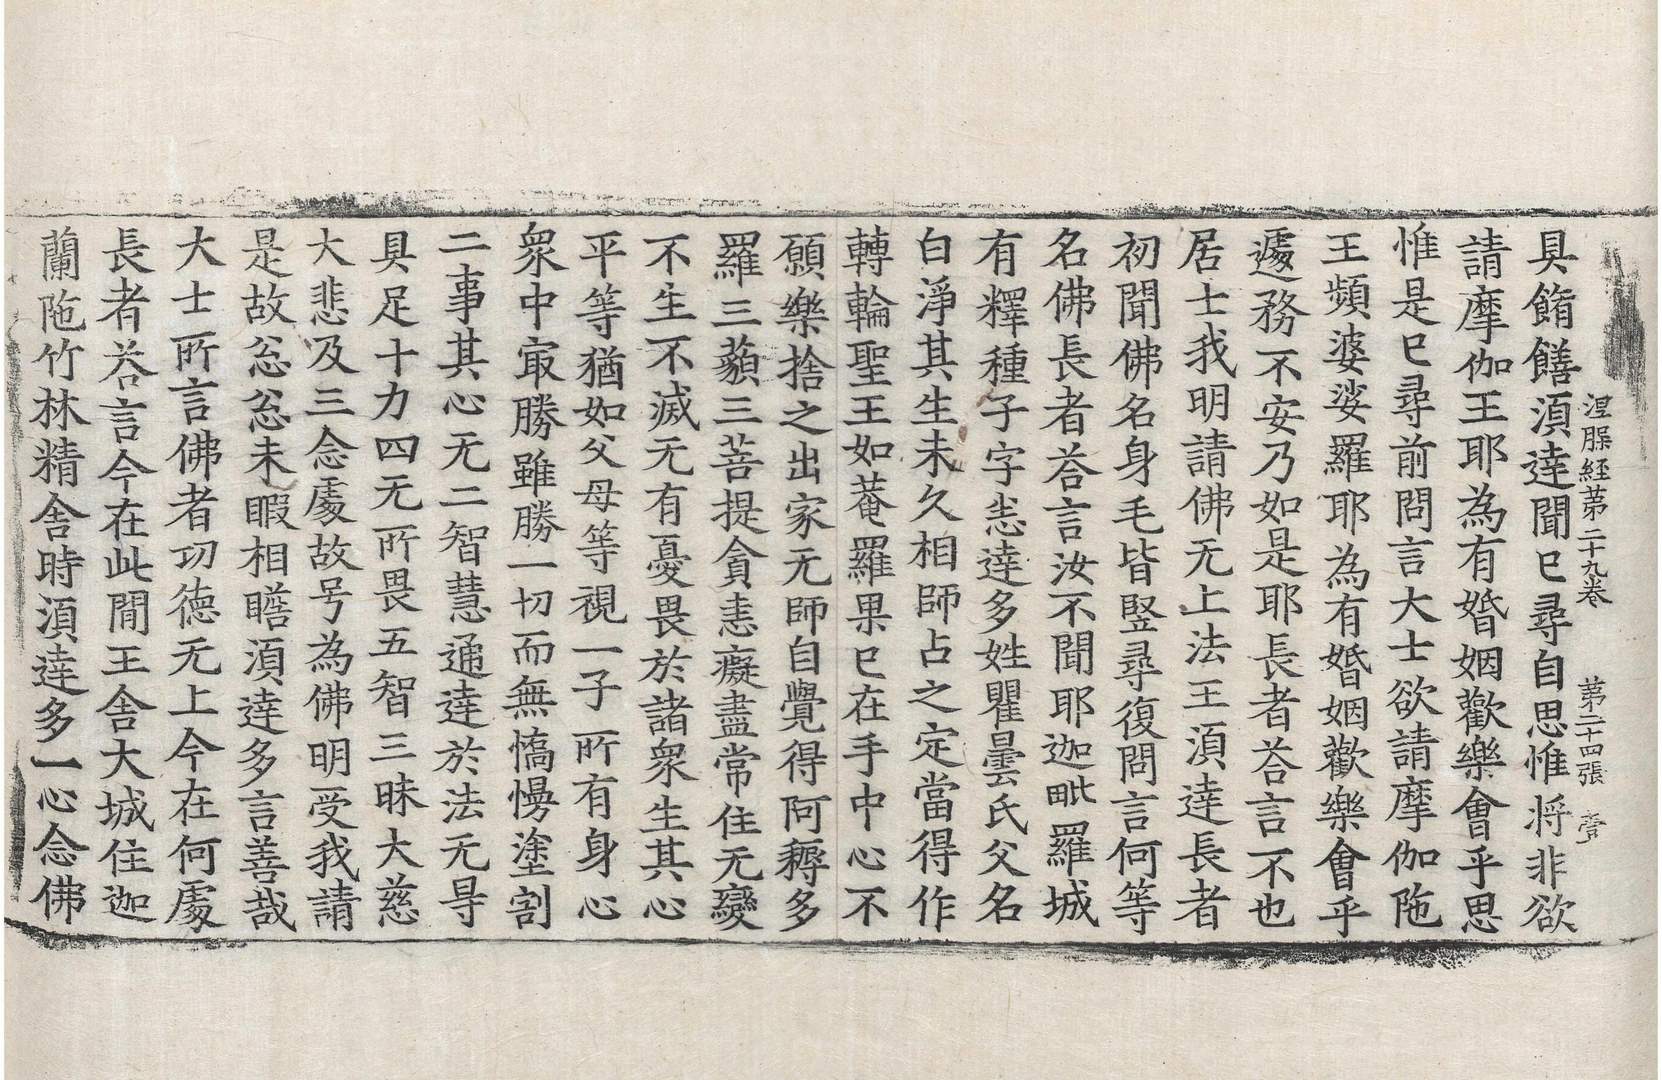 涅槃經第二十九卷 第二十四張 壹
具餚饍湏逹聞已尋自思惟将非欲
請摩伽王耶為有婚姻歡樂會乎思
惟是已尋前問言大士欲請摩伽陁
王頻婆娑羅耶為有婚姻歡樂會乎
遽務不安乃如是耶長者荅言不也
居士我明請佛无上法王湏逹長者
初聞佛名身毛皆竪尋復問言何等
名佛長者荅言汝不聞耶迦毗羅城
有釋種子字悉逹多姓瞿曇氏父名
白淨其生未久相師占之定當得作
轉輪聖王如菴羅果已在手中心不
願樂捨之出家无師自覺得阿耨多
羅三藐三菩提貪恚癡盡常住无變
不生不滅无有憂畏於諸衆生其心
平等猶如父母等視一子所有身心
衆中㝡勝雖勝一切而無憍慢塗割
二事其心无二智慧通逹於法无㝵
具足十力四无所畏五智三昧大慈
大悲及三念處故号為佛明受我請
是故怱怱未暇相瞻湏逹多言善哉
大士所言佛者功德无上今在何處
長者荅言今在此間王舎大城住迦
蘭陁竹林精舎時湏逹多一心念佛